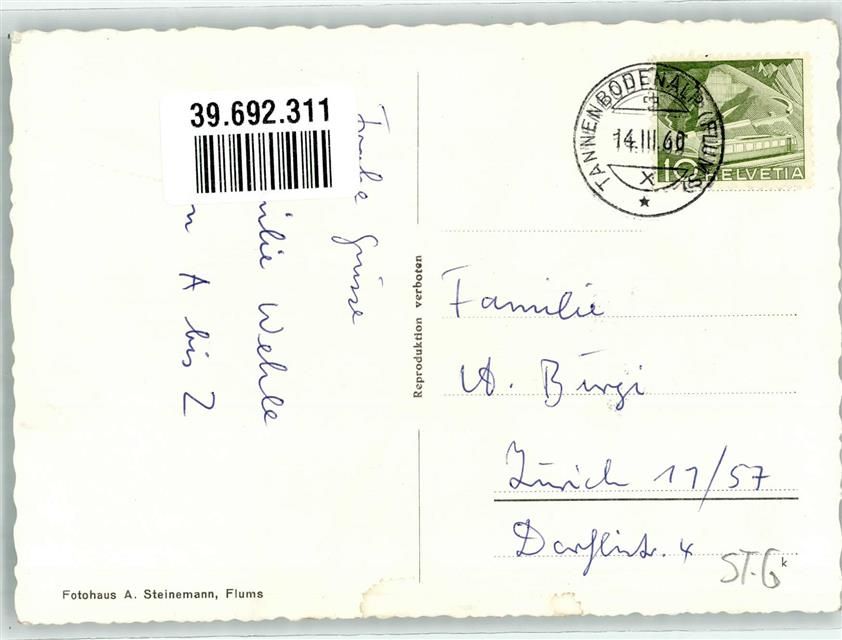 39.692.311
Frohe Grüsse
ilie Wehrle
n A bis Z
Reproduktion verboten
Fotohaus A. Steinemann, Flums
TANNENBODENALP (FLUMS)
14.III.60
X
10 HELVETIA
Familie
A. Bürgi
Zürich 11/57
Dörflistr. 4
ST.G
k